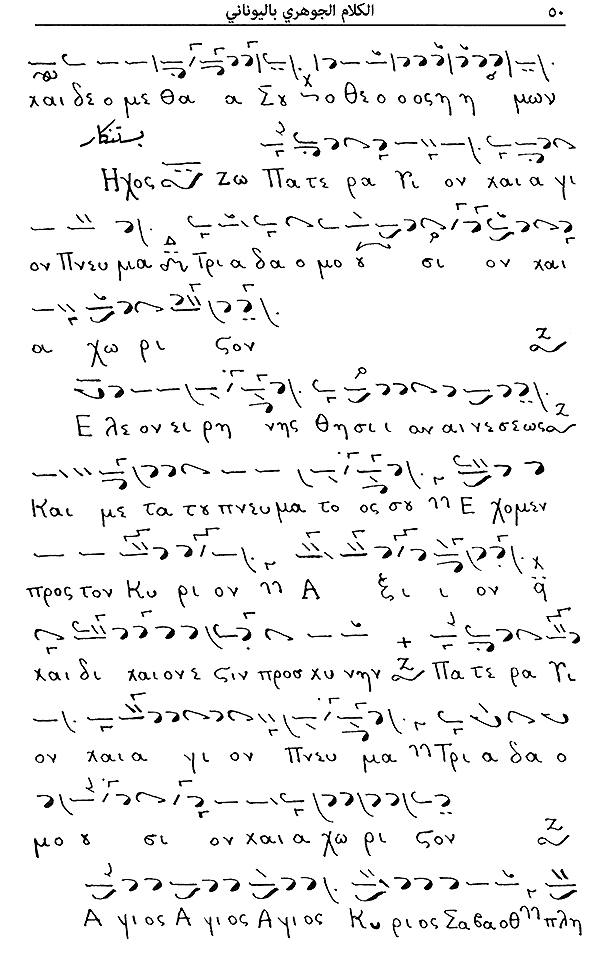 الكلام الجوهري باليوناني ٥٠
χαι δε ο με θα α Σȣ ο θε ο ο ος η η μων
بستنكار
Ηχος Ζω Πα τε ρα Υι ον χαι α γι
ον Πνευ μα Τρι α δα ο μο ȣ σι ον χαι
α χω ρι ϛον
Ε λε ον ει ρη νης θη σι ι αν αι νε σε ως
Και με τα τȣ πνευ μα το ος σȣ Ε χο μεν
προς τον Κυ ρι ον Α ξι ι ον
χαι δι χαι ον ε ϛιν προσ χυ νην Πα τε ρα Υι
ον χαι α γι ον Πνευ μα Τρι α δα ο
μο ȣ σι ον χαι α χω ρι ϛον
Α γιος Α γιος Α γιος Κυ ρι ος Σα βα οθ πλη